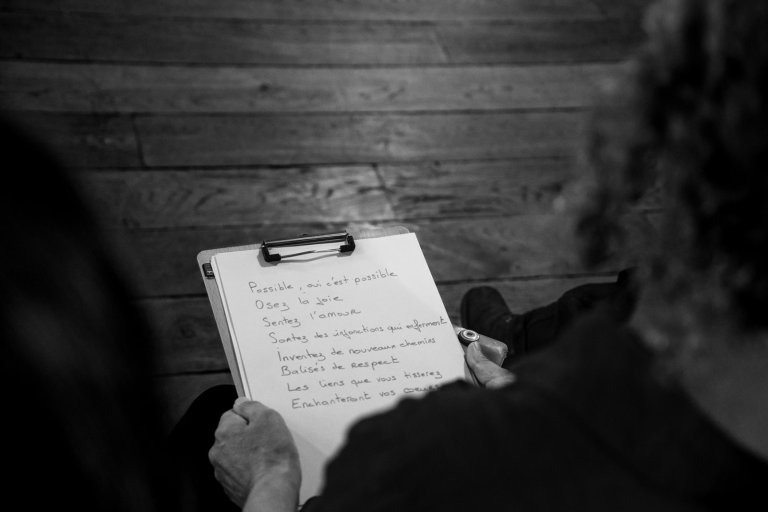 Possible, oui c'est possible
Osez la joie
Sentez l'amour
Sortez des injonctions qui enferment
Inventez de nouveaux chemins
Balisés de respect
Les liens que vous tisserez
Enchanteront vos coeurs